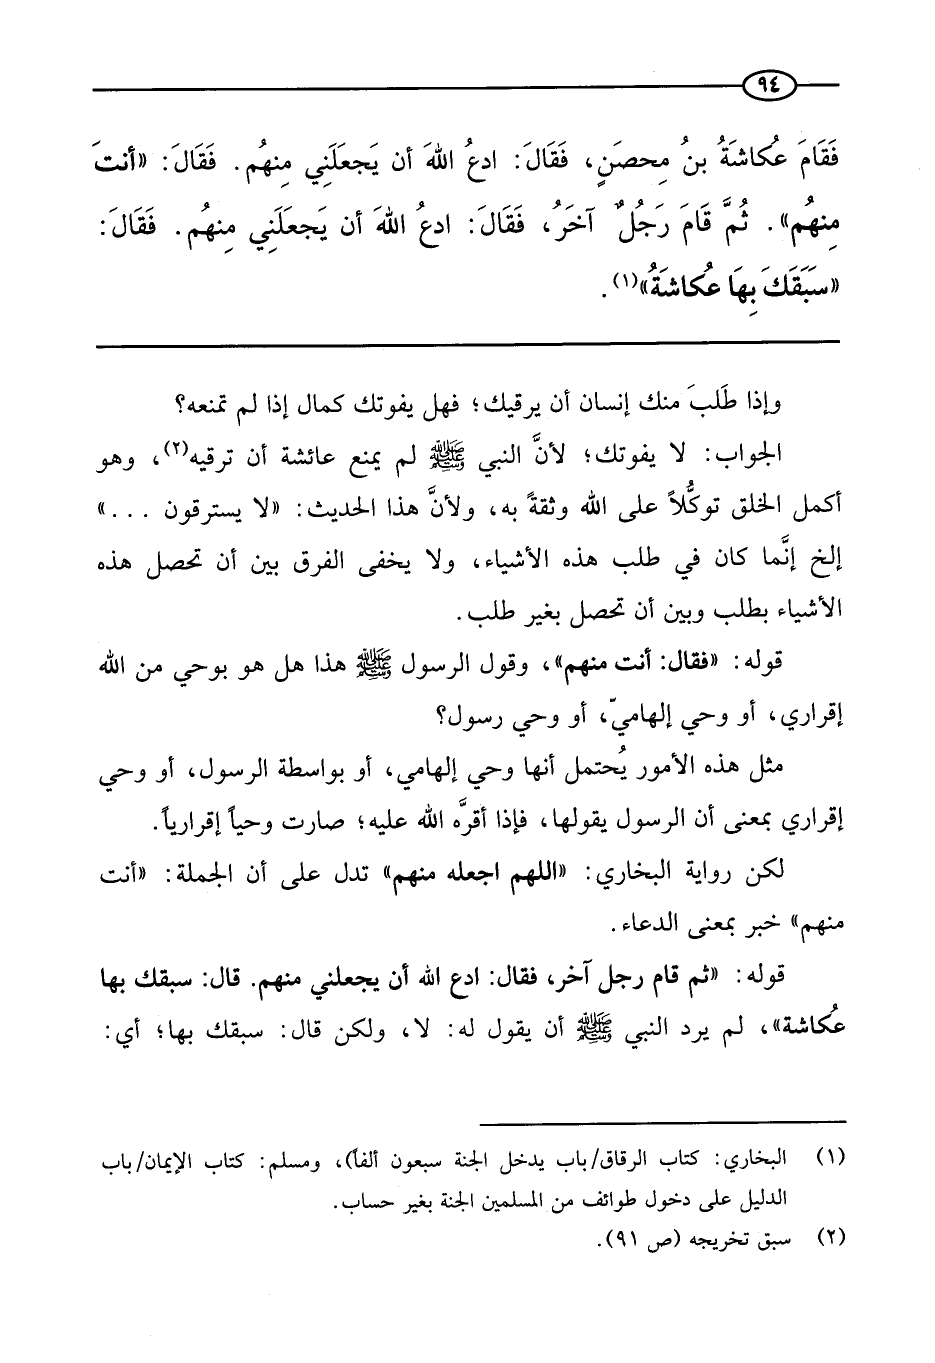 ٩٤
فَقَامَ عُكاشَةُ بنُ مِحصَنٍ، فَقَالَ: ادعُ اللهَ أن يَجعَلَنِي مِنهُم. فَقَالَ: «أنتَ
مِنهُم». ثُمَّ قَامَ رَجُلٌ آخَرُ، فَقَالَ: ادعُ اللهَ أن يَجعَلَنِي مِنهُم. فَقَالَ:
«سَبَقَكَ بِهَا عُكاشَةُ»(١).
وإذا طَلَبَ منك إنسان أن يرقيك؛ فهل يفوتك كمال إذا لم تمنعه؟
الجواب: لا يفوتك؛ لأنَّ النبي ﷺ لم يمنع عائشة أن ترقيه(٢)، وهو
أكمل الخلق توكُّلاً على الله وثقةً به، ولأنَّ هذا الحديث: «لا يسترقون ...»
إلخ إنَّما كان في طلب هذه الأشياء، ولا يخفى الفرق بين أن تحصل هذه
الأشياء بطلب وبين أن تحصل بغير طلب.
قوله: «فقال: أنت منهم»، وقول الرسول ﷺ هذا هل هو بوحي من الله
إقراري، أو وحي إلهاميّ، أو وحي رسول؟
مثل هذه الأمور يُحتمل أنها وحي إلهامي، أو بواسطة الرسول، أو وحي
إقراري بمعنى أن الرسول يقولها، فإذا أقرَّه الله عليه؛ صارت وحياً إقرارياً.
لكن رواية البخاري: «اللهم اجعله منهم» تدل على أن الجملة: «أنت
منهم» خبر بمعنى الدعاء.
قوله: «ثم قام رجل آخر، فقال: ادع الله أن يجعلني منهم. قال: سبقك بها
عُكاشة»، لم يرد النبي ﷺ أن يقول له: لا، ولكن قال: سبقك بها؛ أي:
(١) البخاري: كتاب الرقاق/باب يدخل الجنة سبعون ألفاً)، ومسلم: كتاب الإيمان/باب
الدليل على دخول طوائف من المسلمين الجنة بغير حساب.
(٢) سبق تخريجه (ص ٩١).